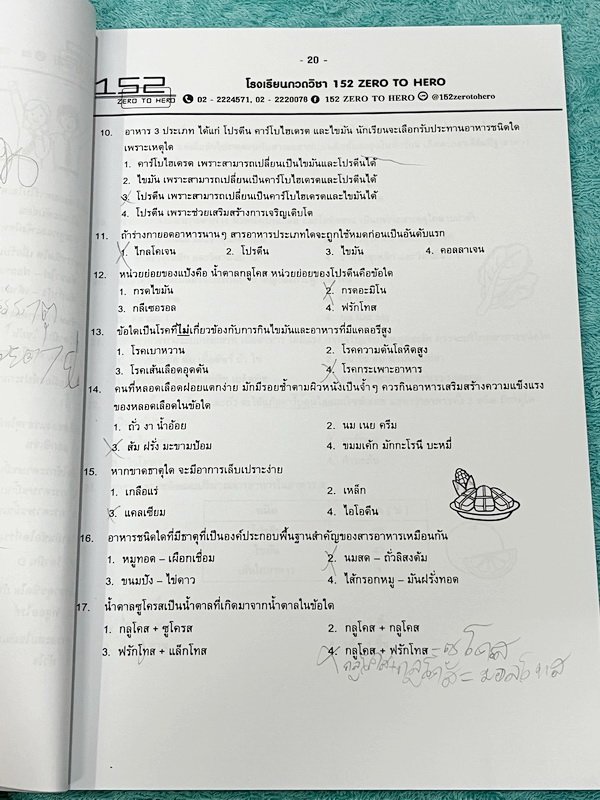 - 20 -
152
ZERO TO HERO
โรงเรียนกวดวิชา 152 ZERO TO HERO
02 - 2224571, 02 - 2220078 152 ZERO TO HERO @152zerotohero
10. อาหาร 3 ประเภท ได้แก่ โปรตีน คาร์โบไฮเดรต และไขมัน นักเรียนจะเลือกรับประทานอาหารชนิดใด
เพราะเหตุใด
1. คาร์โบไฮเดรต เพราะสามารถเปลี่ยนเป็นไขมันและโปรตีนได้
2. ไขมัน เพราะสามารถเปลี่ยนเป็นคาร์โบไฮเดรตและโปรตีนได้
3. โปรตีน เพราะสามารถเปลี่ยนเป็นคาร์โบไฮเดรตและไขมันได้
4. โปรตีน เพราะช่วยเสริมสร้างการเจริญเติบโต
11. ถ้าร่างกายอดอาหารนานๆ สารอาหารประเภทใดจะถูกใช้หมดก่อนเป็นอันดับแรก
1. ไกลโคเจน 2. โปรตีน 3. ไขมัน 4. คอลลาเจน
12. หน่วยย่อยของแป้งคือ น้ำตาลกลูโคส หน่วยย่อยของโปรตีนคือข้อใด
1. กรดไขมัน 2. กรดอะมิโน
3. กลีเซอรอล 4. ฟรักโทส
13. ข้อใดเป็นโรคที่ไม่เกี่ยวข้องกับการกินไขมันและอาหารที่มีแคลอรีสูง
1. โรคเบาหวาน 2. โรคความดันโลหิตสูง
3. โรคเส้นเลือดอุดตัน 4. โรคกระเพาะอาหาร
14. คนที่หลอดเลือดฝอยแตกง่าย มักมีรอยช้ำตามผิวหนังเป็นจ้ำๆ ควรกินอาหารเสริมสร้างความแข็งแรง
ของหลอดเลือดในข้อใด
1. ถั่ว งา น้ำอ้อย 2. นม เนย ครีม
3. ส้ม ฝรั่ง มะขามป้อม 4. ขมมเค้ก มักกะโรนี บะหมี่
15. หากขาดธาตุใด จะมีอาการเล็บเปราะง่าย
1. เกลือแร่ 2. เหล็ก
3. แคลเซียม 4. ไอโอดีน
16. อาหารชนิดใดที่มีธาตุที่เป็นองค์ประกอบพื้นฐานสำคัญของสารอาหารเหมือนกัน
1. หมูทอด - เผือกเชื่อม 2. นมสด - ถั่วลิสงต้ม
3. ขนมปัง - ไข่ดาว 4. ไส้กรอกหมู - มันฝรั่งทอด
17. น้ำตาลซูโครสเป็นน้ำตาลที่เกิดมาจากน้ำตาลในข้อใด
1. กลูโคส + ซูโครส 2. กลูโคส + กลูโคส
3. ฟรักโทส + แล็กโทส 4. กลูโคส + ฟรักโทส